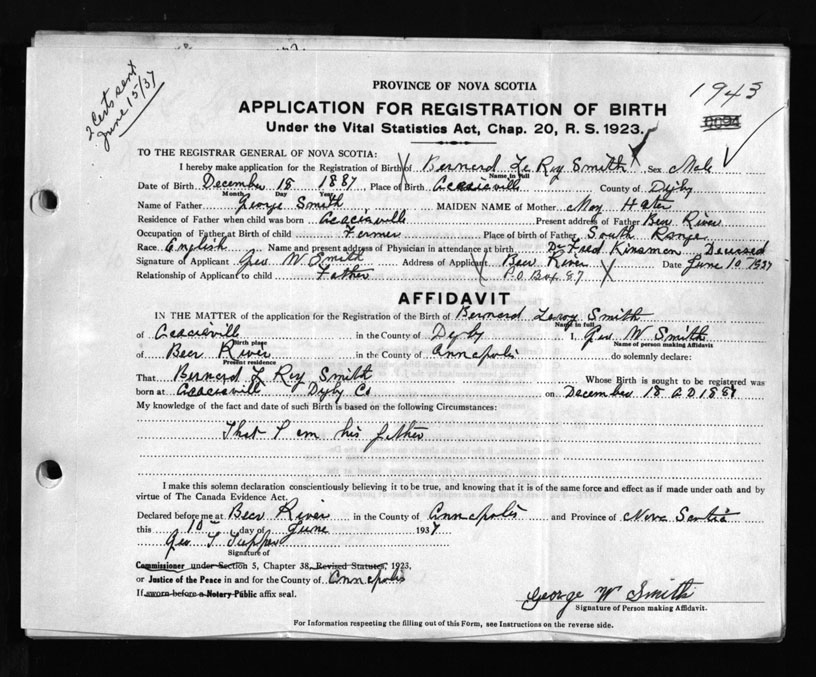 2 Certs sent
June 15/37
PROVINCE OF NOVA SCOTIA
1943
APPLICATION FOR REGISTRATION OF BIRTH
Under the Vital Statistics Act, Chap. 20, R. S. 1923.
TO THE REGISTRAR GENERAL OF NOVA SCOTIA:
I hereby make application for the Registration of Birth of Bernard Le Roy Smith Sex Male
Name in full
Date of Birth December 18 1887 Place of Birth Acaciaville County of Digby
Month Day Year
Name of Father George Smith MAIDEN NAME of Mother May
Residence of Father when child was born Acaciaville Present address of Father Bear River
Occupation of Father at Birth of child Farmer Place of birth of Father South Range
Race English Name and present address of Physician in attendance at birth Dr Fred Kinsman Deceased
Signature of Applicant Geo W Smith Address of Applicant Bear River Date June 10-1937
Relationship of Applicant to child Father P.O Box 87
AFFIDAVIT
IN THE MATTER of the application for the Registration of the Birth of Bernard Leroy Smith
Name in full
of Acaciaville in the County of Digby I, Geo W Smith
Birth place Name of person making Affidavit
of Bear River in the County of Annapolis do solemnly declare:
Present residence
That Bernard Le Roy Smith Whose Birth is sought to be registered was
born at Acaciaville Digby Co on December 18 A D 1887
My knowledge of the fact and date of such Birth is based on the following Circumstances:
That I am his father
I make this solemn declaration conscientiously believing it to be true, and knowing that it is of the same force and effect as if made under oath and by
virtue of The Canada Evidence Act.
Declared before me at Bear River in the County of Annapolis and Province of Nova Scotia
this 10 day of June 1937
Geo T Tupper
Signature of
Commissioner under Section 5, Chapter 38, Revised Statutes, 1923,
or Justice of the Peace in and for the County of Annapolis
If sworn before a Notary Public affix seal.
George W Smith
Signature of Person making Affidavit.
For Information respecting the filling out of this Form, see Instructions on the reverse side.